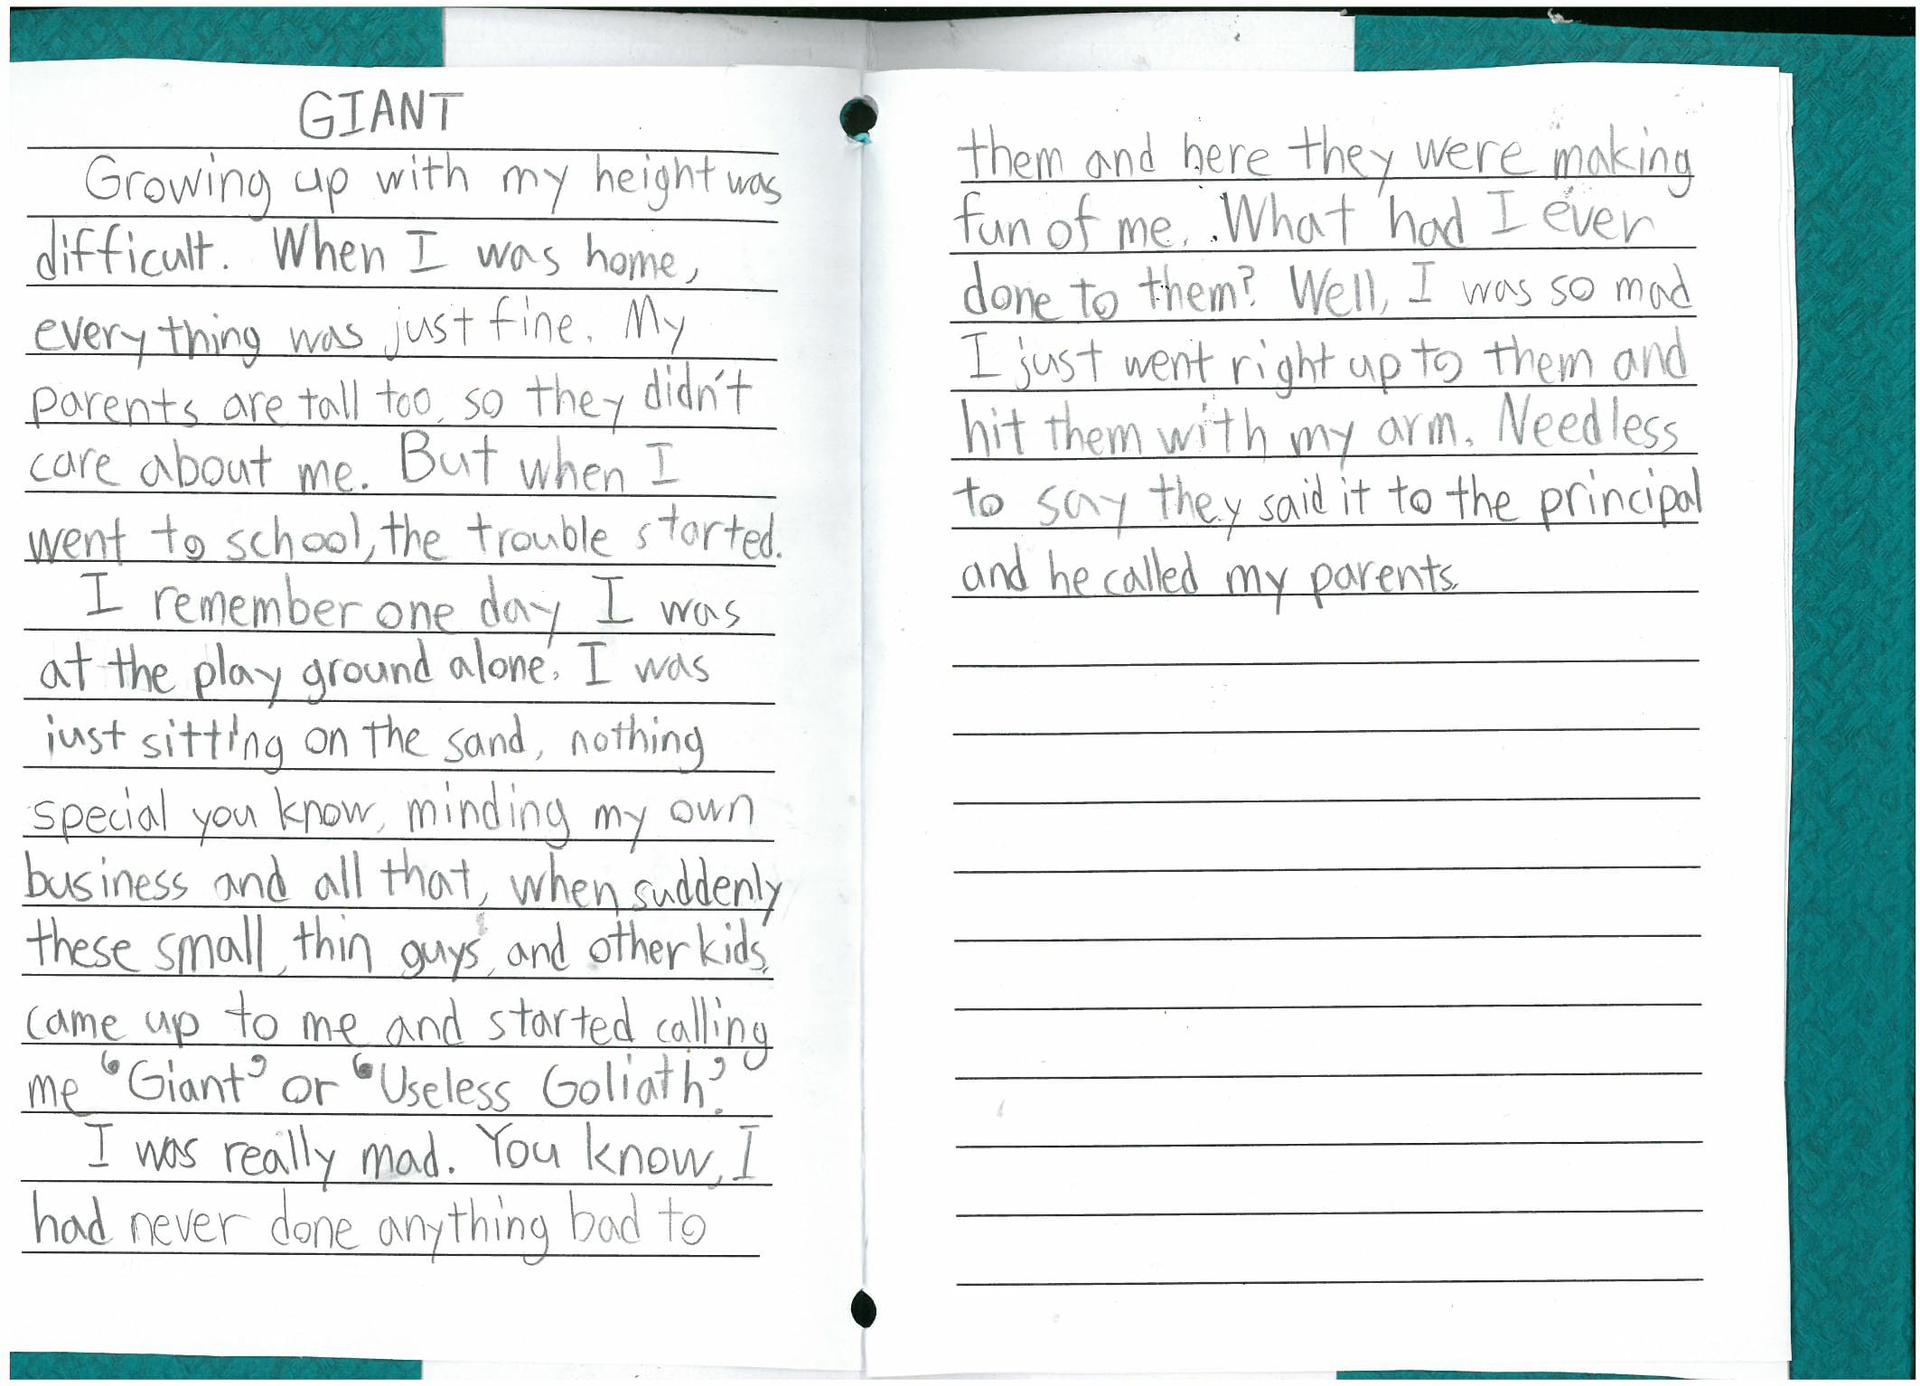 GIANT
Growing up with my height was
difficult. When I was home,
every thing was just fine. My
parents are tall too, so they didn't
care about me. But when I
went to school, the trouble started.
I remember one day I was
at the play ground alone. I was
just sitting on the sand, nothing
special you know, minding my own
business and all that, when suddenly
these small, thin guys, and other kids,
came up to me and started calling
me "Giant" or "Useless Goliath".
I was really mad. You know, I
had never done anything bad to
them and here they were making
fun of me. What had I ever
done to them? Well, I was so mad
I just went right up to them and
hit them with my arm. Needless
to say they said it to the principal
and he called my parents.